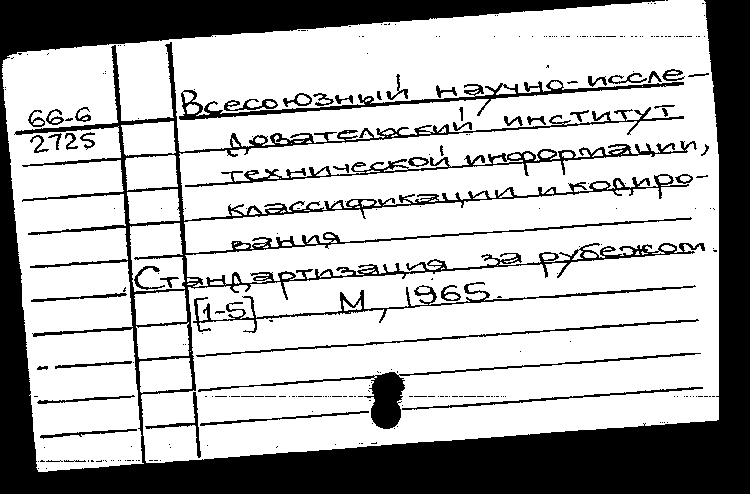 66-6
2725
Всесоюзный научно-иссле-
довательский институт
технической информации,
классификации и кодиро-
вания
Стандартизация за рубежом.
[1-5]. М, 1965.